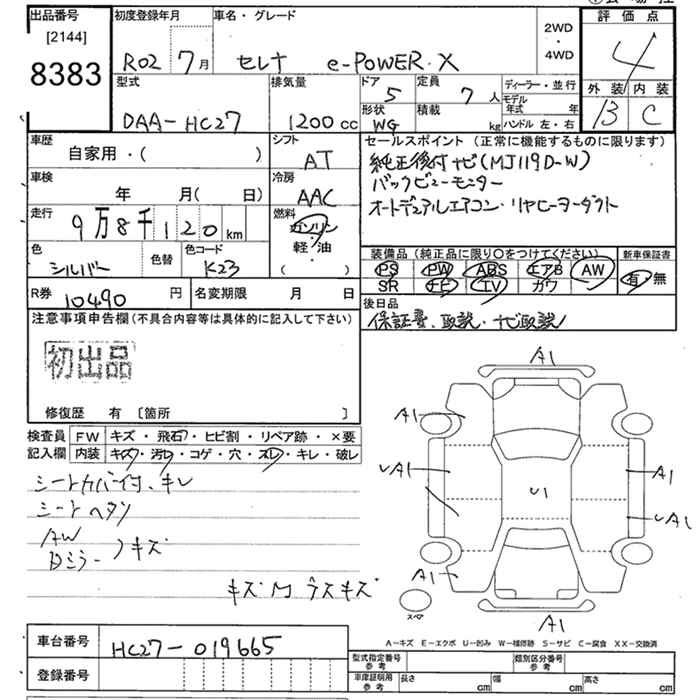 出品番号
[2144]
8383
初度登録年月
R02 7月
車名・グレード
セレナ e-POWER・X
2WD
・
4WD
評価点
4
外装 内装
B C
型式
DAA-HC27
排気量
1200cc
ドア
5
定員
7人
形状
WG
積載
kg
ディーラー・並行
モデル年式 年
ハンドル 左・右
車歴
自家用・( )
シフト
AT
車検
年 月( 日)
冷房
AAC
走行
9万8千120km
燃料
ガソリン
・
軽・油
( )
色
シルバー
色替
色コード
K23
R券
10490円
名変期限 月 日
セールスポイント(正常に機能するものに限ります)
純正後付ナビ(MJ119D-W)
バックビューモニター
オートデュアルエアコン・リヤヒーターダクト
装備品(純正品に限り○をつけてください)
PS PW ABS エアB AW
SR ナビ TV カワ
新車保証書
有 無
後日品
保証書、取説・ナビ取説
注意事項申告欄(不具合内容等は具体的に記入して下さい)
初出品
修復歴 有 [箇所 ]
検査員記入欄
FW キズ・飛石・ヒビ割・リペア跡・×要
内装 キズ・汚レ・コゲ・穴・スレ・キレ・破レ
シートカバー付、キレ
シートヘタリ
AW
Dミラー キズ
キズ M ラスキズ
A1
A1
UA1
A1
U1
UA1
A1
A1
スペア
A-キズ E-エクボ U-凹み W-補修跡 S-サビ C-腐食 XX-交換済
車台番号
HC27-019665
登録番号
型式指定番号
参考
類別区分番号
参考
車庫証明用
参考
長さ cm 幅 cm 高さ cm